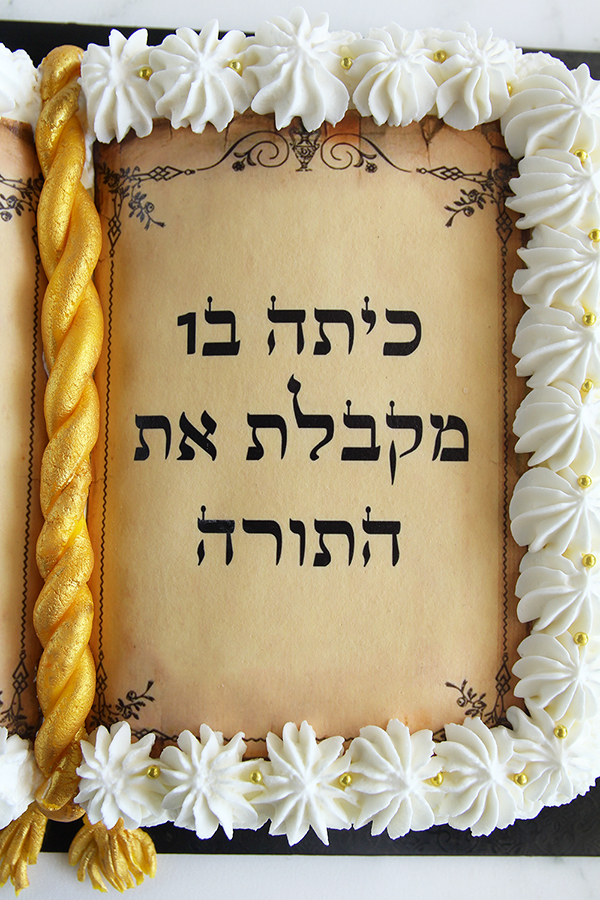 כיתה ב1
מקבלת את
התורה